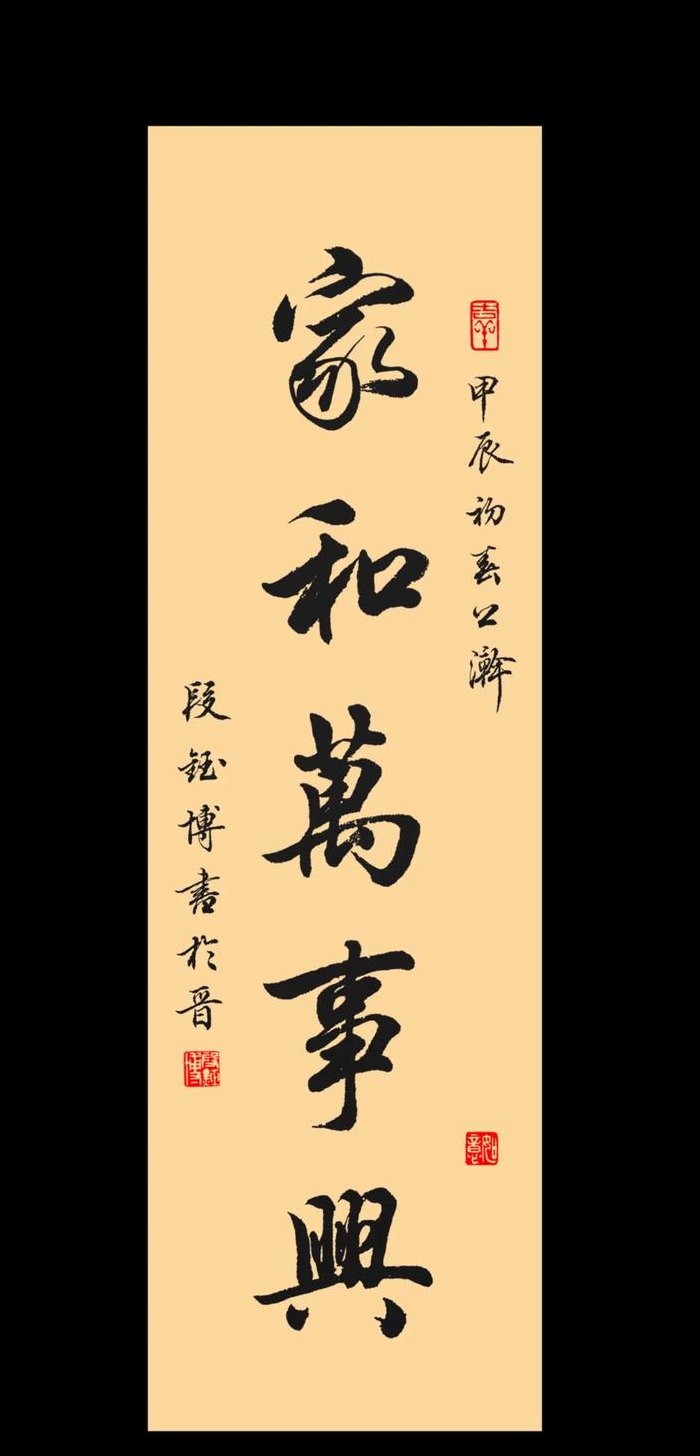 甲辰初春
家和萬事興
段鈺博書於晋
如意